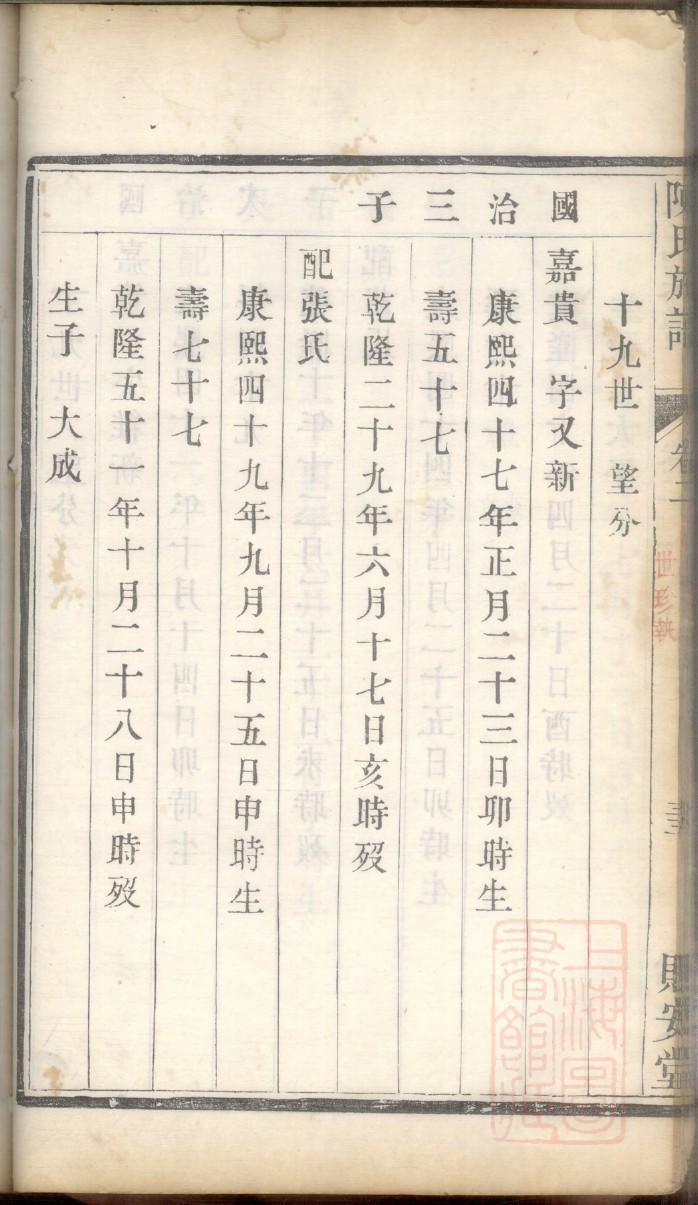 陳氏族譜
卷二
世珍執
貽安堂
十九世 望分
國治三子
嘉貴 字又新
康熙四十七年正月二十三日卯時生
壽五十七
乾隆二十九年六月十七日亥時歿
配張氏
康熙四十九年九月二十五日申時生
壽七十七
乾隆五十一年十月二十八日申時歿
生子 大成
上海圖
書館藏